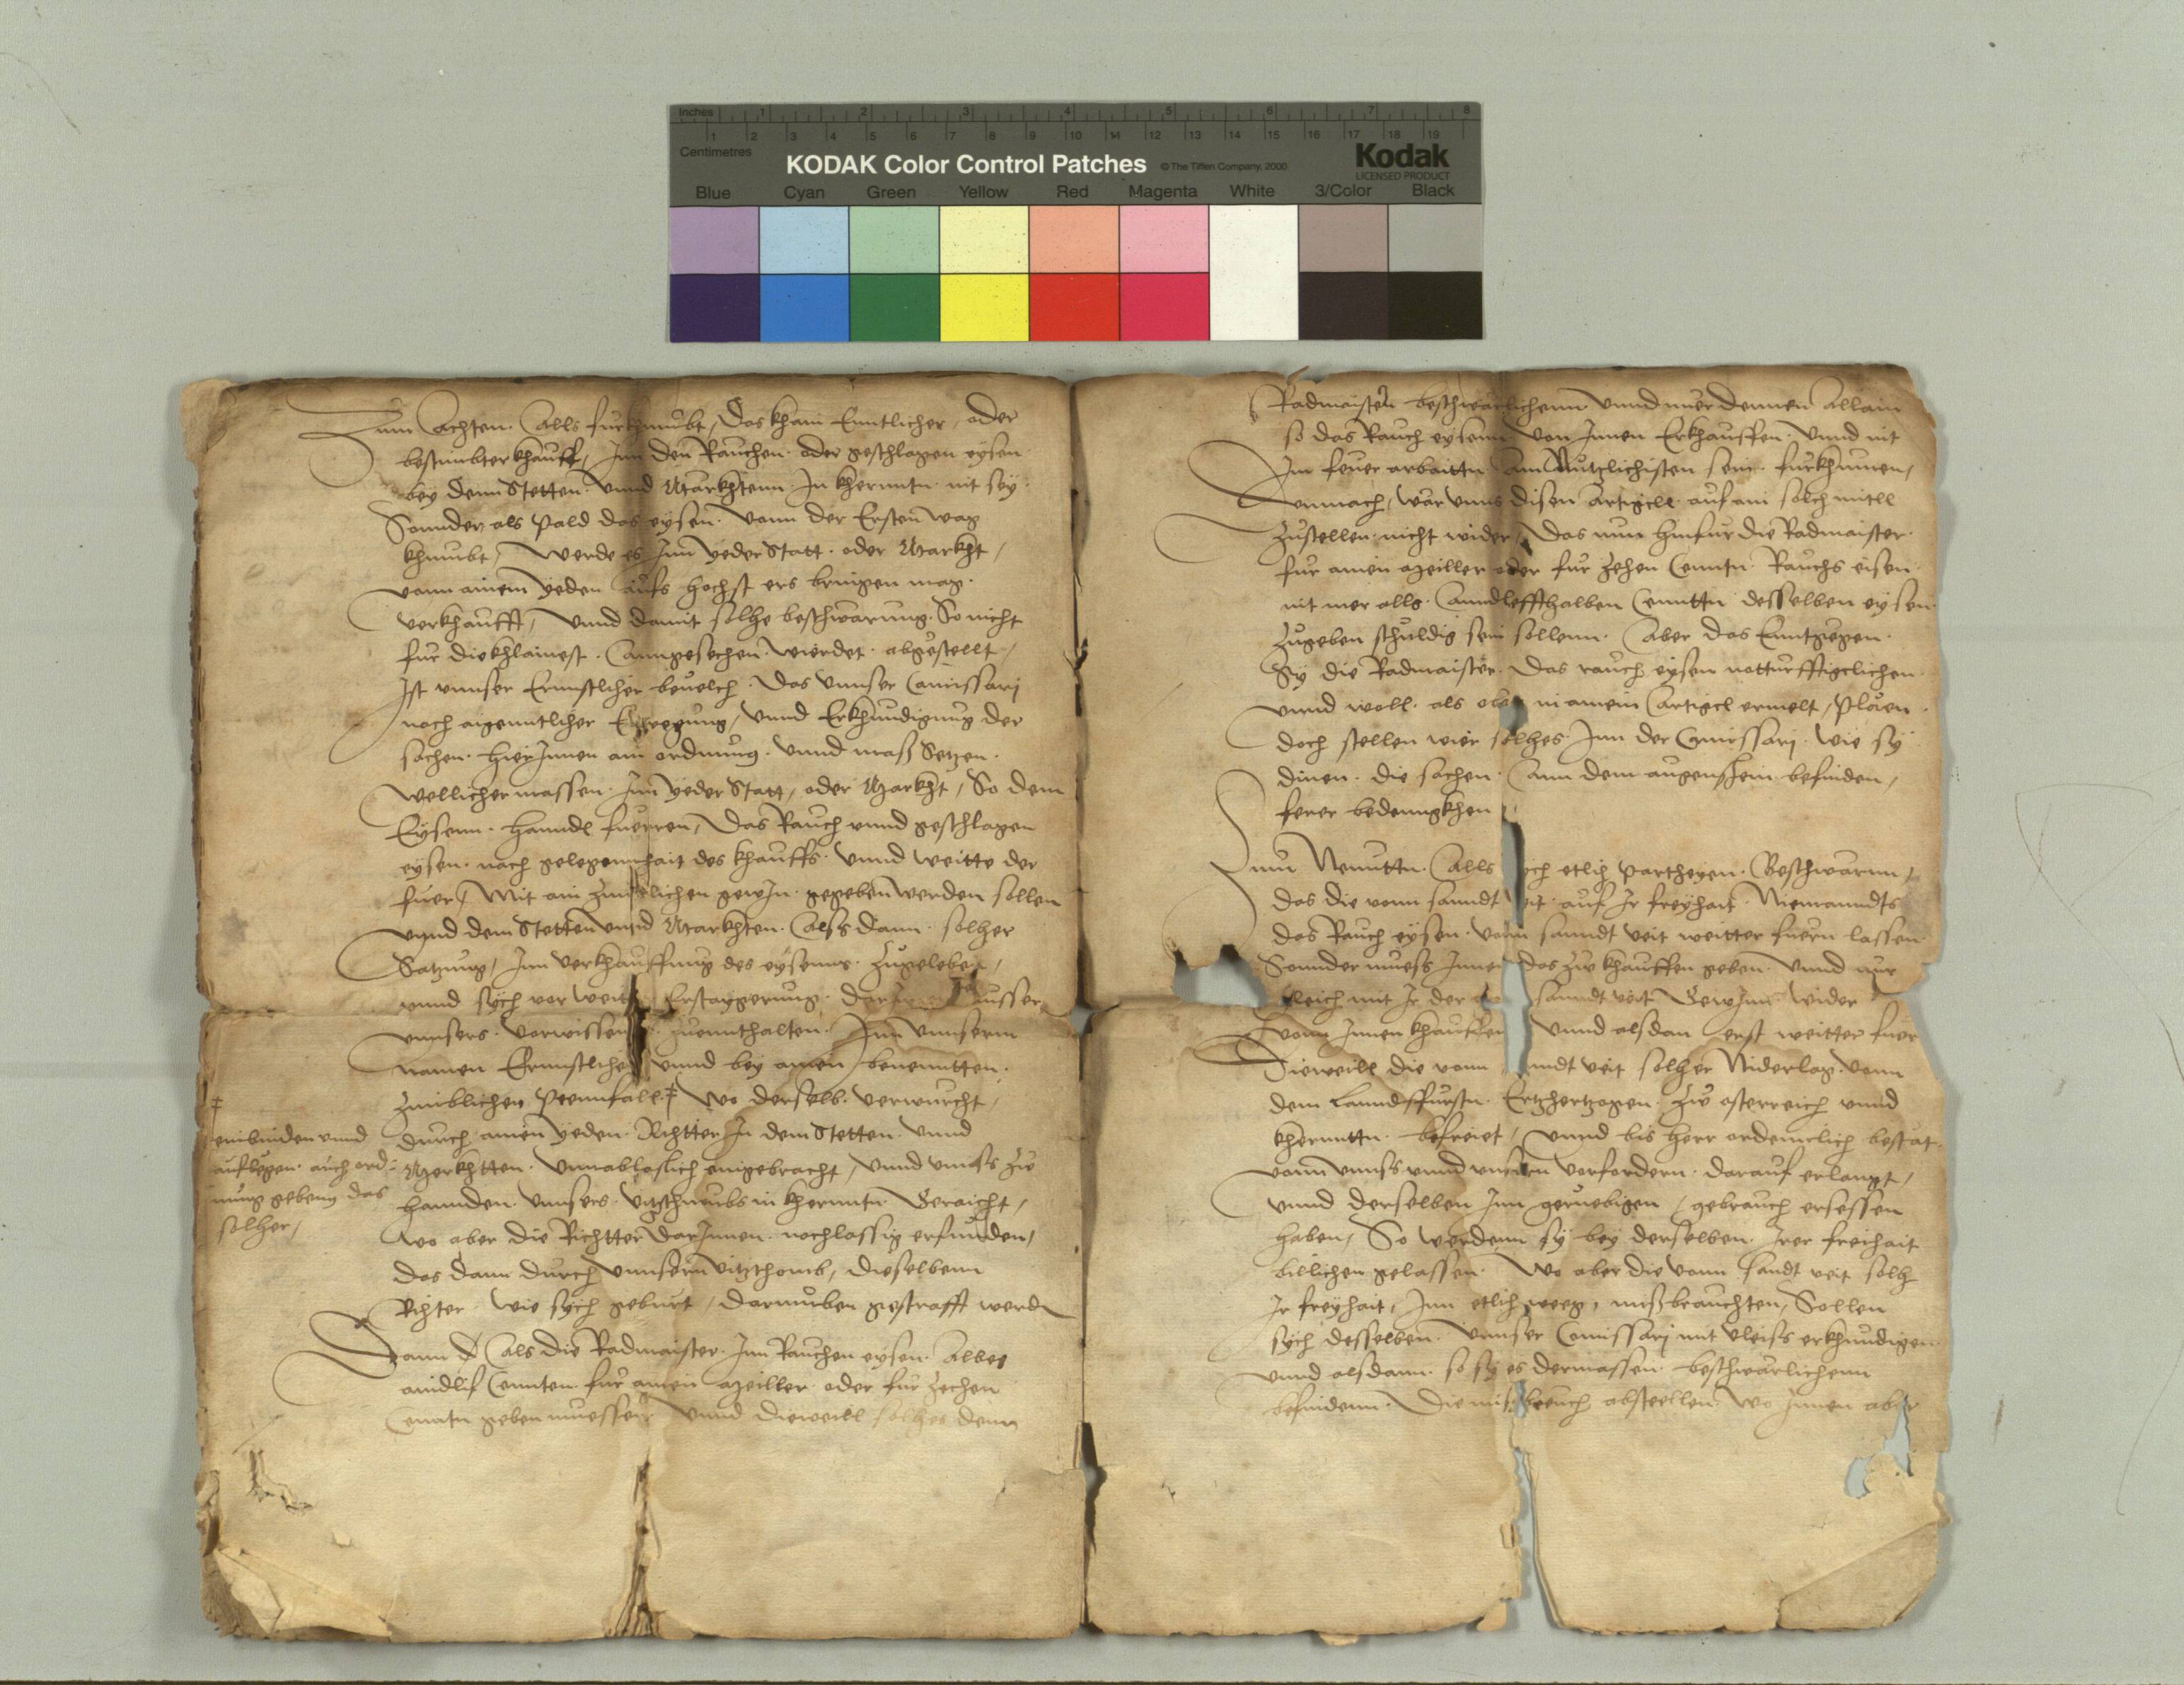 Inches 1 2 3 4 5 6 7 8
1 2 3 4 5 6 7 8 9 10 11 12 13 14 15 16 17 18 19
Centimetres
KODAK Color Control Patches © The Tiffen Company, 2000 Kodak
LICENSED PRODUCT
Blue Cyan Green Yellow Red Magenta White 3/Color Black
Zum Achten. Alls furkhumbt, Das khain Enntlicher, oder
bestimbter khauff, Inn den Rauchen oder geschlagen eysen
bey denn Stetten vnnd Markhtenn In khernntn nit sey
Sonnder als pald das eysen vonn der Ersten wag
khumbt, Werde es Inn yeder Statt oder Markht,
vonn ainem yeden aufs hochst ers bringen mag
verkhaufft, vnnd damit solhe beschwarung So nicht
fur die khlainest Anngesechen wierdet abgestellt,
Ist vnnser Ernnstlicher beuelch Das vnnser Comissarj
nach aigenntlicher Erwegung, vnnd Erkhundigung der
sachen hierInnen ain ordnung vnnd mass Setzen
Wellichermassen Inn yeder Statt, oder Markht, So dem
Eysenn Hanndl fuerren, Das Rauch vnnd geschlagen
eysen nach gelegennhait des khauffs vnnd weitte der
fuer, Mit ain zimblichen gewin gegeben werden sollen
vnnd dem Stetten vnnd Markhten Alssdann solher
Satzung, Inn verkhauffung des eysenns zugeleben,
vnnd sych vor weit Erstaygerung ausser
vnnsers vorwissen zuenthalten Inn vnnserm
namen Ernnstlichen vnnd bey ainen benenntten
zimblichen Peennfall ‡ Wo derselb verwurcht,
durch ainen yeden Richtter In dem Stetten vnnd
Markhtten vnnablaslich eingebracht, vnnd vnnss zw
hannden vnnsers vitzthumbs in khernntn Geraicht,
Wo aber die Richtter darInnen nachlassig erfunden,
das dann durch vnnsern vitzthomb, dieselbenn
Richter wie sych geburt, darumben gestrafft werd
‡ einbinden vnnd
auflegen auch ord-
nung gebenn das
solher,
Dann Als die Radmaister Inn Rauchen eysen Albeg
aindlif Cennten fur ainen Meiller oder fur zechen
Centn geben muessen vnnd dieweill solhes denn
Radmaistern beschwarlichenn vnnd nuer dennen Allain
so das Rauch eysenn von Innen Erkhauffen vnnd nit
Im feuer arbaittn Am Nutzlichisten sein furkhumen,
Demnach, war vnns disen Artigell auf ain solch mitll
zustellen nicht wider, Das nun hinfur die Radmaister
fur ainen Meiller oder fur zehen Cenntn Rauchs eisen
nit mer alls Ainndleffthalben Cenntn desselben eysen
zugeben schuldig sein sollenn Aber das Enntgegen
Sy die Radmaister das rauch eysen notturfftigclichen
vnnd woll als oben in ainem Artigcl ermelt, plaien
doch stellen wier solhes Inn der Comissarj wie sy
dinen die sachen Ann dem augenschein befinden,
ferer bedenngkhen
Zum Nennttn Alls sych etlich partheyen Beschwarnn,
das die vonn sanndt veit auf Ir freyhait Niemanndts
das Rauch eysen vonn sanndt veit weitter fuern lassen
Sonnder muess Innen das zw khauffen geben vnnd nur
gleich mit Ir der sanndt veit Gewinn wider
vonn Innen khauffen vnnd alsdan erst weitter fuer
Dieweill die vonn sanndt veit solher Niderlag vonn
dem Lanndtsfursstn Ertzhertzogen zw osterreich vnnd
khernntn befreiet, vnnd bis heer ordennlich bestat
vonn vnnss vnnd vnnsern vorfordern darauf erlangt,
vnnd derselben Inn geruebigen gebrauch ersessen
haben, So werdenn sy bey derselben Irer freihait
billichen gelassen Wo aber die vonn sandt veit solh
Ir freyhait, Inn etlich weeg, missbrauchten, Sollen
sych desselben vnnser Comissarj mit vleiss erkhundigen
vnnd alsdann so sy es dermassen beschwarlichenn
befindenn Die missbreuch abstellen Wo Innen aber